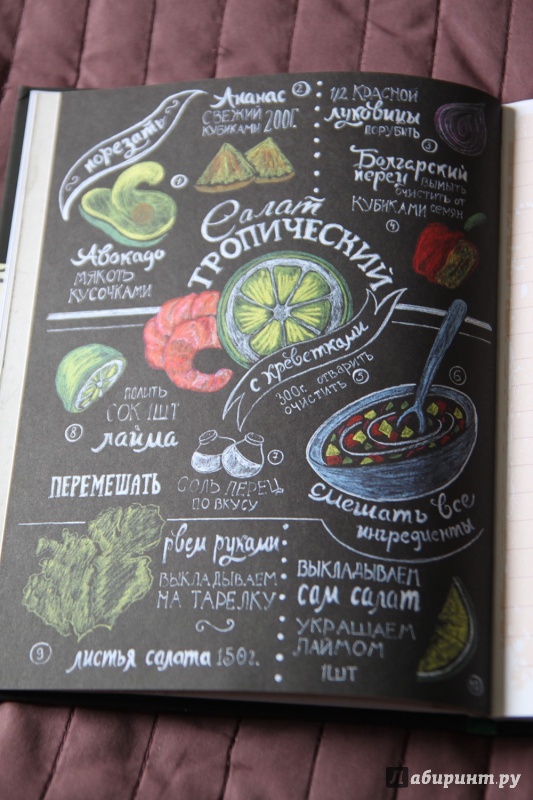 порезать
1
Авокадо
мякоть
кусочками
Ананас 2
свежий
кубиками 200г
1/2 красной
луковицы
порубить
3
Болгарский
перец вымыть
очистить от
кубиками семян
4
Салат
тропический
с креветками
300г. отварить
очистить 5
6
смешать все
ингредиенты
7
соль перец
по вкусу
8
полить
сок 1шт
лайма
перемешать
9
листья салата 150г.
рвем руками
выкладываем
на тарелку
выкладываем
сам салат
украшаем
лаймом
1шт
10
Лабиринт.ру